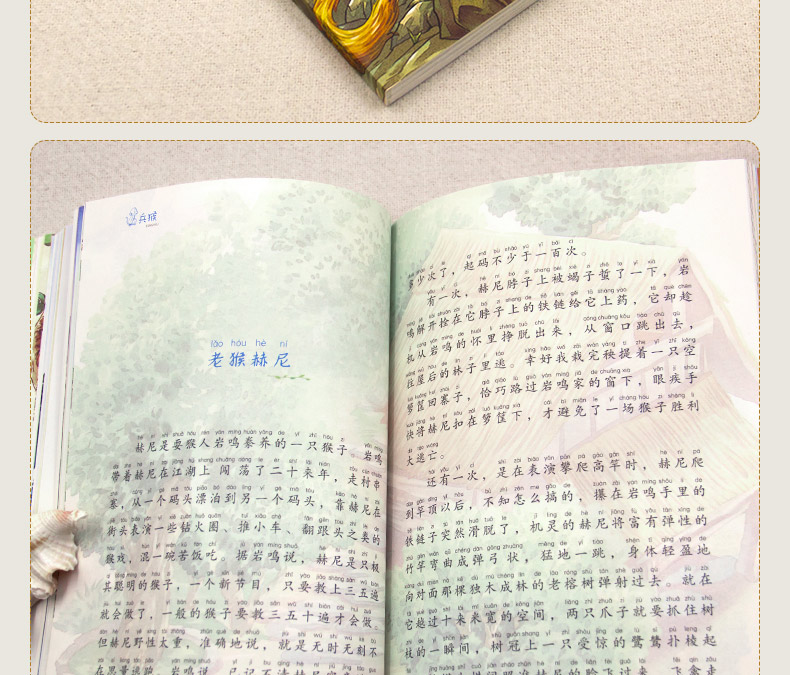 兵猴
lǎo hóu hè ní
老猴赫尼
赫尼是耍猴人岩鸣豢养的一只猴子。岩鸣
带着赫尼在江湖上闯荡了二十来年,走村串
寨,从一个码头漂泊到另一个码头,靠赫尼在
街头表演一些钻火圈、推小车、翻跟头之类的
猴戏,混一碗苦饭吃。据岩鸣说,赫尼是只极
其聪明的猴子,一个新节目,只要教上三五遍
就会做了,一般的猴子要教三五十遍才会做。
但赫尼野性太重,准确地说,就是无时无刻不
在思量逃跑。岩鸣说,已记不清赫尼
多少次了,起码不少于一百次。
有一次,赫尼脖子上被蝎子蜇了一下,岩
鸣解开拴在它脖子上的铁链给它上药,它却趁
机从岩鸣的怀里挣脱出来,从窗口跳出去,
往屋后的林子里逃。幸好我栽完秧提着一只空
箩筐回寨子,恰巧路过岩鸣家的窗下,眼疾手
快将赫尼扣在箩筐下,才避免了一场猴子胜利
大逃亡。
还有一次,是在表演攀爬高竿时,赫尼爬
到竿顶以后,不知怎么搞的,攥在岩鸣手里的
铁链子突然滑脱了,机灵的赫尼将富有弹性的
竹竿弯曲成弹弓状,猛地一跳,身体轻盈地
向对面那棵独木成林的老榕树弹射过去。就在
它越过十来米宽的空间,两只爪子就要抓住树
枝的一瞬间,树冠上一只受惊的鹭鸶扑棱起